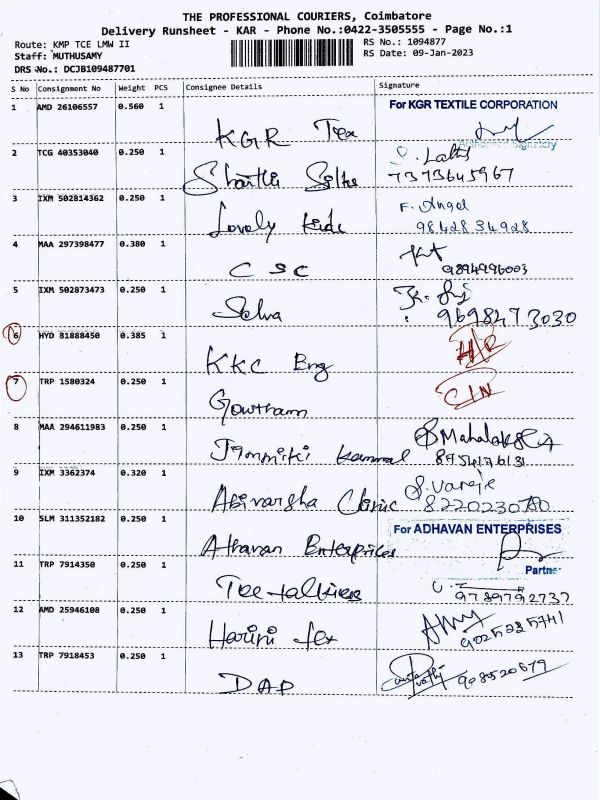 THE PROFESSIONAL COURIERS, Coimbatore
Delivery Runsheet - KAR - Phone No.:0422-3505555 - Page No.:1
Route: KMP TCE LMW II
RS No.: 1094877
Staff: MUTHUSAMY
RS Date: 09-Jan-2023
DRS No.: DCJB109487701
S No Consignment No Weight PCS Consignee Details Signature
1 AMD 26106557 0.560 1 For KGR TEXTILE CORPORATION
KGR Tex
Authorised Signatory
2 TCG 40353040 0.250 1
7373645967
3 IXM 502814362 0.250 1 F. Angel
Lovely Kids 98428 34928
4 MAA 297398477 0.380 1
CSC 9894996003
5 IXM 502873473 0.250 1
Selva 9698473030
6 HYD 81888450 0.385 1
KKC Eng
7 TRP 1580324 0.250 1
Gowtham
8 MAA 294611983 0.250 1
9 IXM 3362374 0.320 1
Abivarsha Clinic
10 SLM 311352182 0.250 1 For ADHAVAN ENTERPRISES
Athavan Enterprices
Partner
11 TRP 7914350 0.250 1
9789792737
12 AMD 25946108 0.250 1
Harini Tex
13 TRP 7918453 0.250 1
DAP